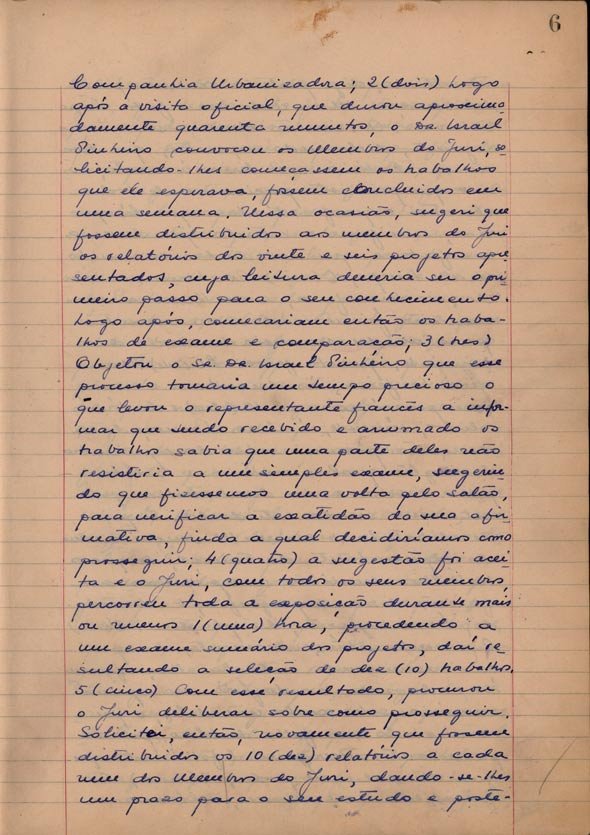 6
Companhia Urbanizadora; 2 (dois) Logo
após a visita oficial, que durou aproxima-
damente quarenta minutos, o Dr. Israel
Pinheiro convocou os Membros do Juri, so-
licitando-lhes começassem os trabalhos
que ele esperava, fossem concluidos em
uma semana. Nessa ocasião, sugeri que
fossem distribuidos aos membros do Juri
os relatórios dos vinte e seis projetos apre-
sentados, cuja leitura deveria ser o pri-
meiro passo para o seu conhecimento.
Logo após, começariam então os traba-
lhos de exame e comparação; 3 (tres)
Objetou o Sr. Dr. Israel Pinheiro que esse
processo tomaria um tempo precioso o
que levou o representante francês a infor-
mar que tendo recebido e arrumado os
trabalhos sabia que uma parte deles não
resistiria a um simples exame, sugerin-
do que fizessemos uma volta pelo salão,
para verificar a exatidão da sua afir-
mativa, finda a qual decidiríamos como
prosseguir; 4 (quatro) a sugestão foi acei-
ta e o Juri, com todos os seus membros,
percorreu toda a exposição durante mais
ou menos 1 (uma) hora, procedendo a
um exame sumário dos projetos, daí re-
sultando a seleção de dez (10) trabalhos.
5 (cinco) Com esse resultado, procurou
o Juri deliberar sobre como prosseguir.
Solicitei, então, novamente que fossem
distribuidos os 10 (dez) relatórios a cada
um dos Membros do Juri, dando-se-lhes
um prazo para o seu estudo e poste-